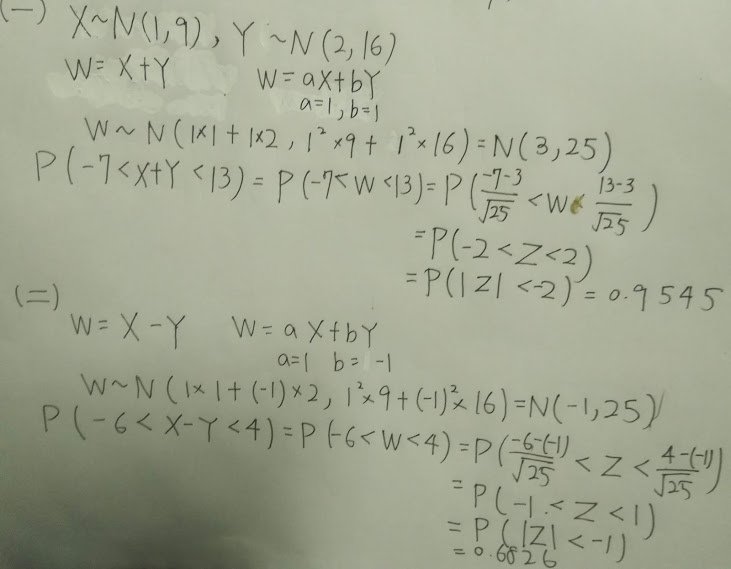 (一) X~N(1,9), Y~N(2,16)
W=X+Y W=aX+bY
a=1, b=1
W~N(1×1+1×2, 1²×9+1²×16)=N(3,25)
P(-7<X+Y<13)=P(-7<W<13)=P(\frac{-7-3}{√25}<W<\frac{13-3}{√25})
=P(-2<Z<2)
=P(|Z|<-2)=0.9545
(二)
W=X-Y W=aX+bY
a=1 b=-1
W~N(1×1+(-1)×2, 1²×9+(-1)²×16)=N(-1,25)
P(-6<X-Y<4)=P(-6<W<4)=P(\frac{-6-(-1)}{√25}<Z<\frac{4-(-1)}{√25})
=P(-1<Z<1)
=P(|Z|<-1)
=0.6826